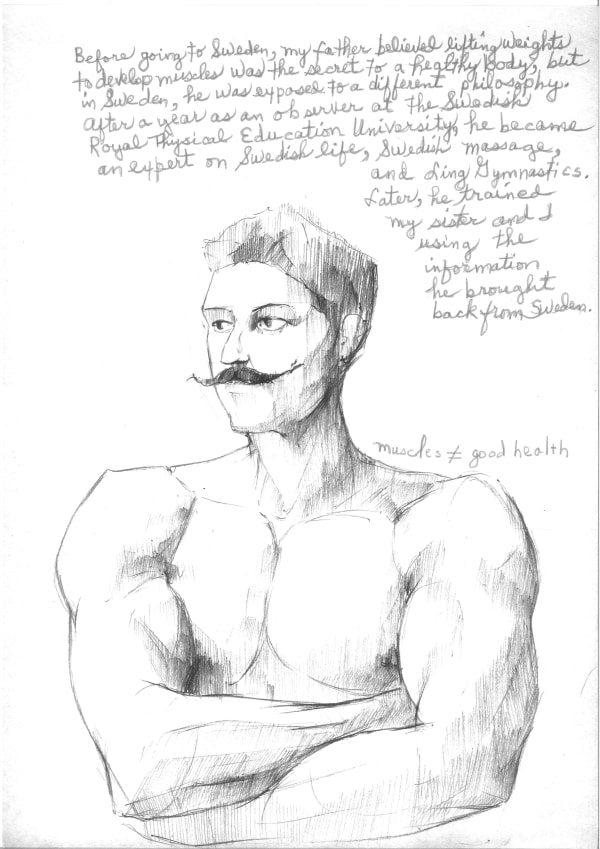 Before going to Sweden, my father believed lifting weights
to develop muscles was the secret to a healthy body, but
in Sweden, he was exposed to a different philosophy.
After a year as an observer at the Swedish
Royal Physical Education University, he became
an expert on Swedish life, Swedish massage,
and Ling Gymnastics.
Later, he trained
my sister and I
using the
information
he brought
back from Sweden.
muscles ≠ good health